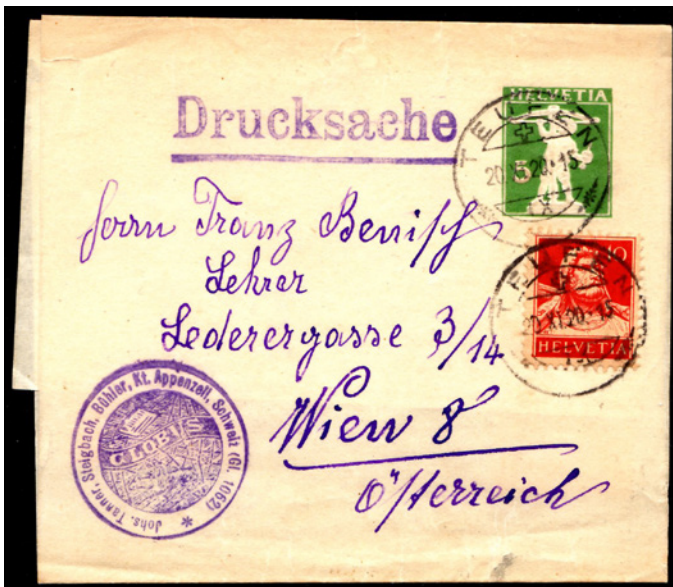 Drucksache
HELVETIA
5
TEUFEN
20.XI.20.-15
Herrn Franz Benisch
Lehrer
Lederergasse 3/14
Wien 8
Österreich
10
TEUFEN
20.XI.20.-15
HELVETIA
Johs. Tanner, Steigbach, Bühler, Kt. Appenzell, Schweiz (Gl. 1062)
GLOBUS